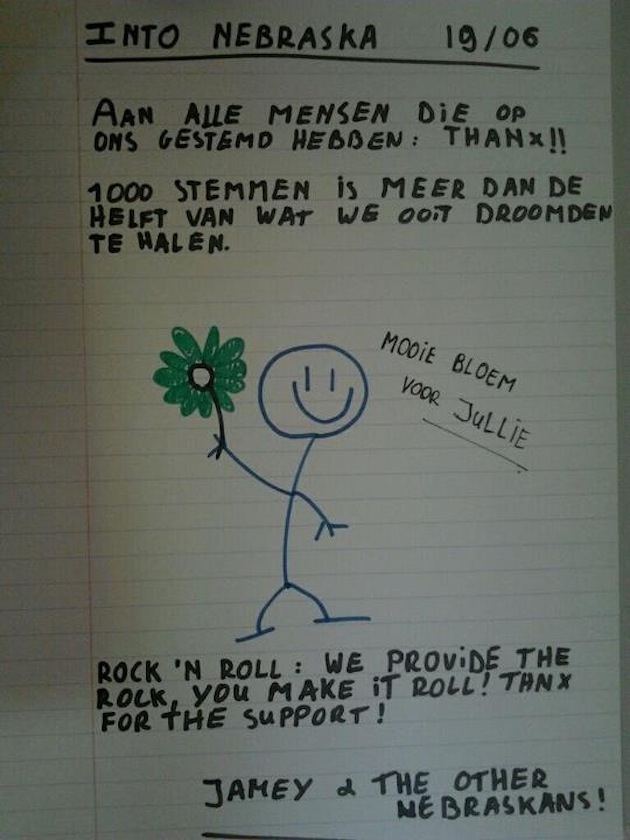 INTO NEBRASKA 19/06
AAN ALLE MENSEN DIE OP
ONS GESTEMD HEBBEN: THANX!!
1000 STEMMEN IS MEER DAN DE
HELFT VAN WAT WE OOIT DROOMDEN
TE HALEN.
MOOIE BLOEM
VOOR JULLIE
ROCK 'N ROLL: WE PROVIDE THE
ROCK, YOU MAKE IT ROLL! THNX
FOR THE SUPPORT!
JAMEY & THE OTHER
NEBRASKANS!